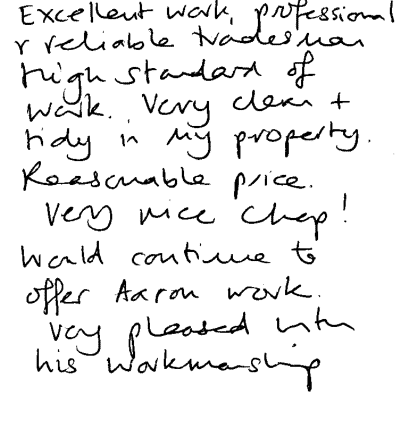 Excellent work, professional
+ reliable tradesman
High standard of
work. Very clean +
tidy in my property.
Reasonable price.
Very nice chap!
Would continue to
offer Aaron work.
Very pleased with
his workmanship